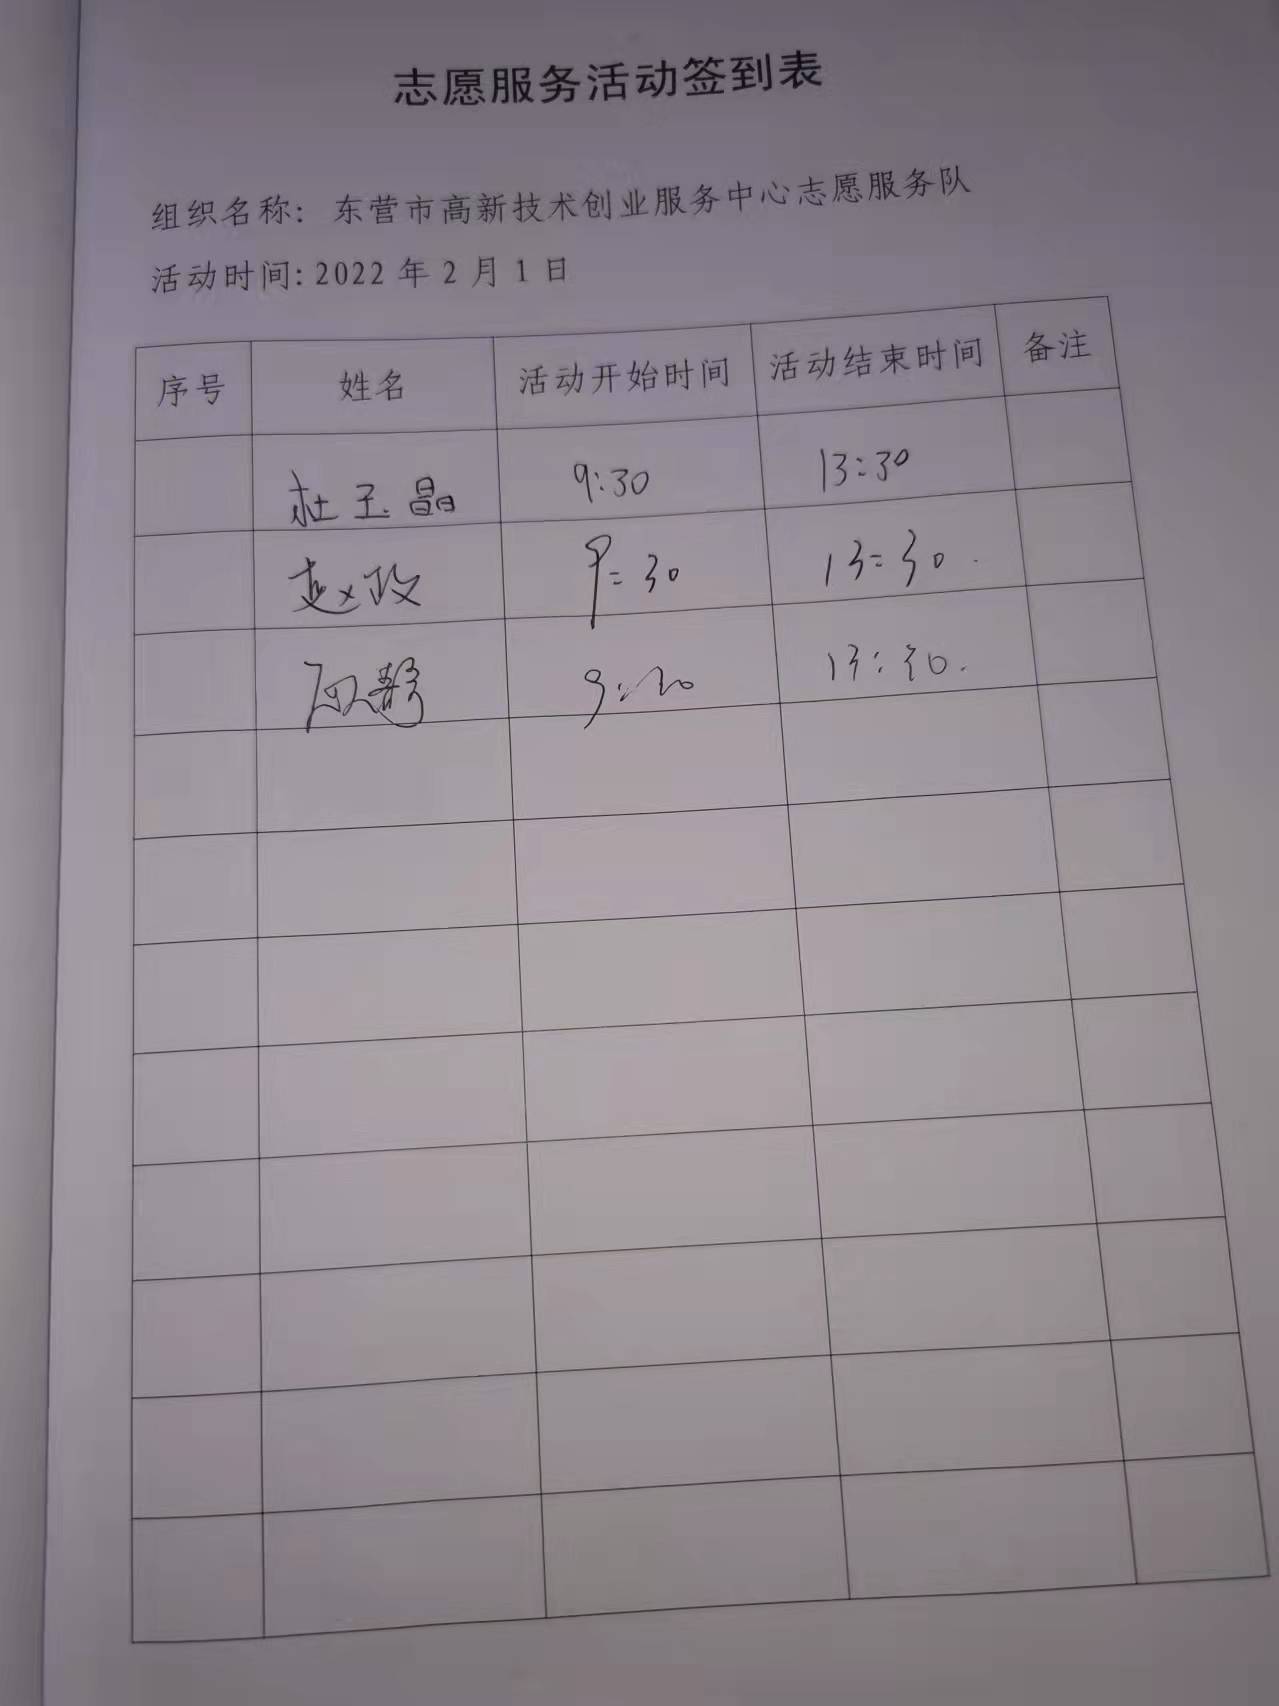 志愿服务活动签到表
组织名称: 东营市高新技术创业服务中心志愿服务队
活动时间: 2022 年 2 月 1 日
序号 姓名 活动开始时间 活动结束时间 备注
杜玉晶 9:30 13:30
赵政 9:30 13:30.
9:30 13:30.